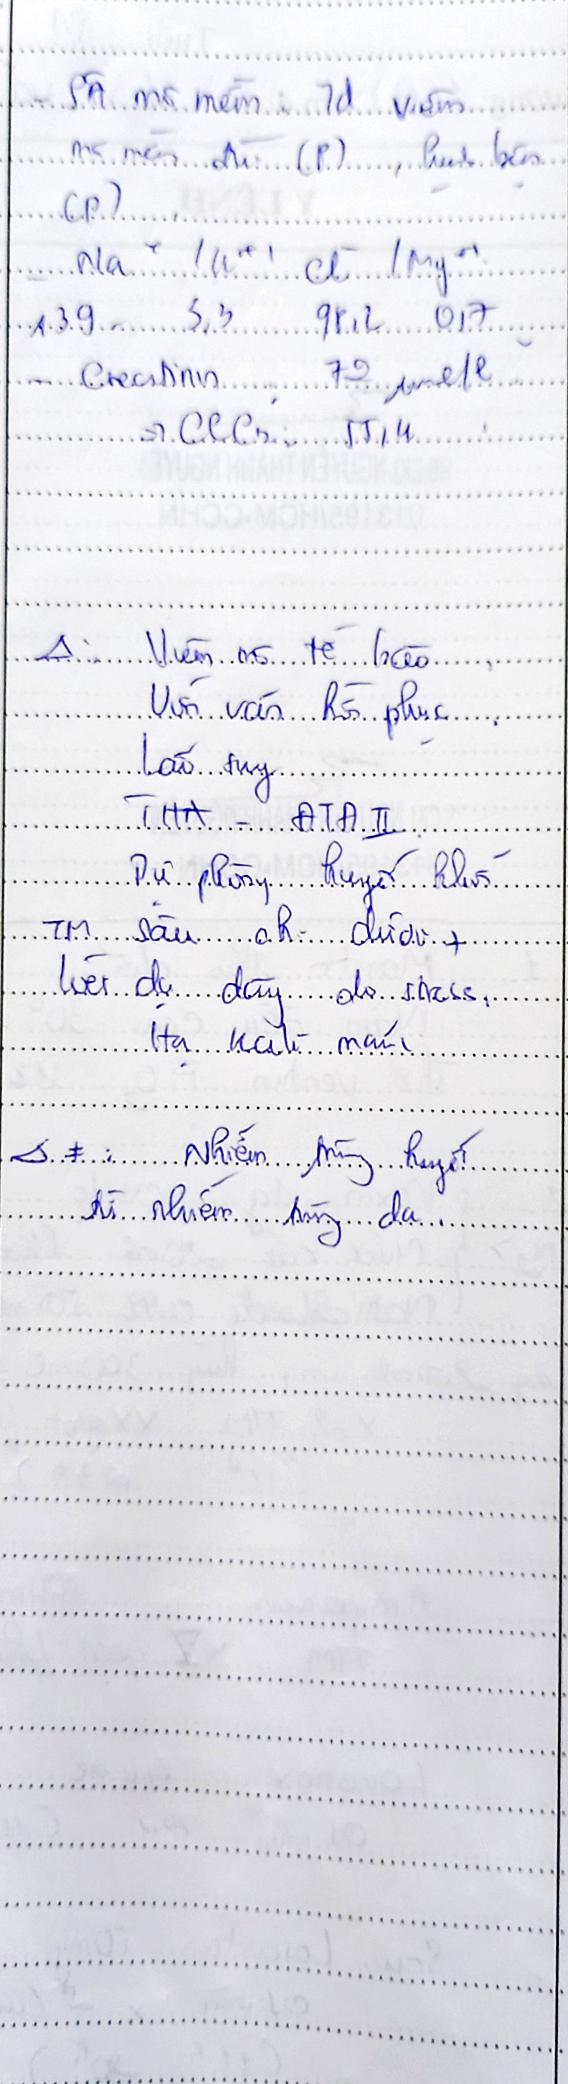 - SÂ mô mềm: Td viêm
mô mềm đùi (P), 
(P).
- Na⁺ K⁺ Cl⁻ Mg⁺⁺
139 3,3 98,2 0,7
- Creatinin 72 µmol/l
→ ClCr: 55,4
Δ: Viêm mô tế bào
Vết hồi phục
Lão suy
THA - ĐTĐ II
Dự phòng huyết khối
TM sâu chi dưới +
loét dạ dày do stress.
Hạ kali máu.
Δ ≠: Nhiễm trùng huyết
từ nhiễm trùng da.